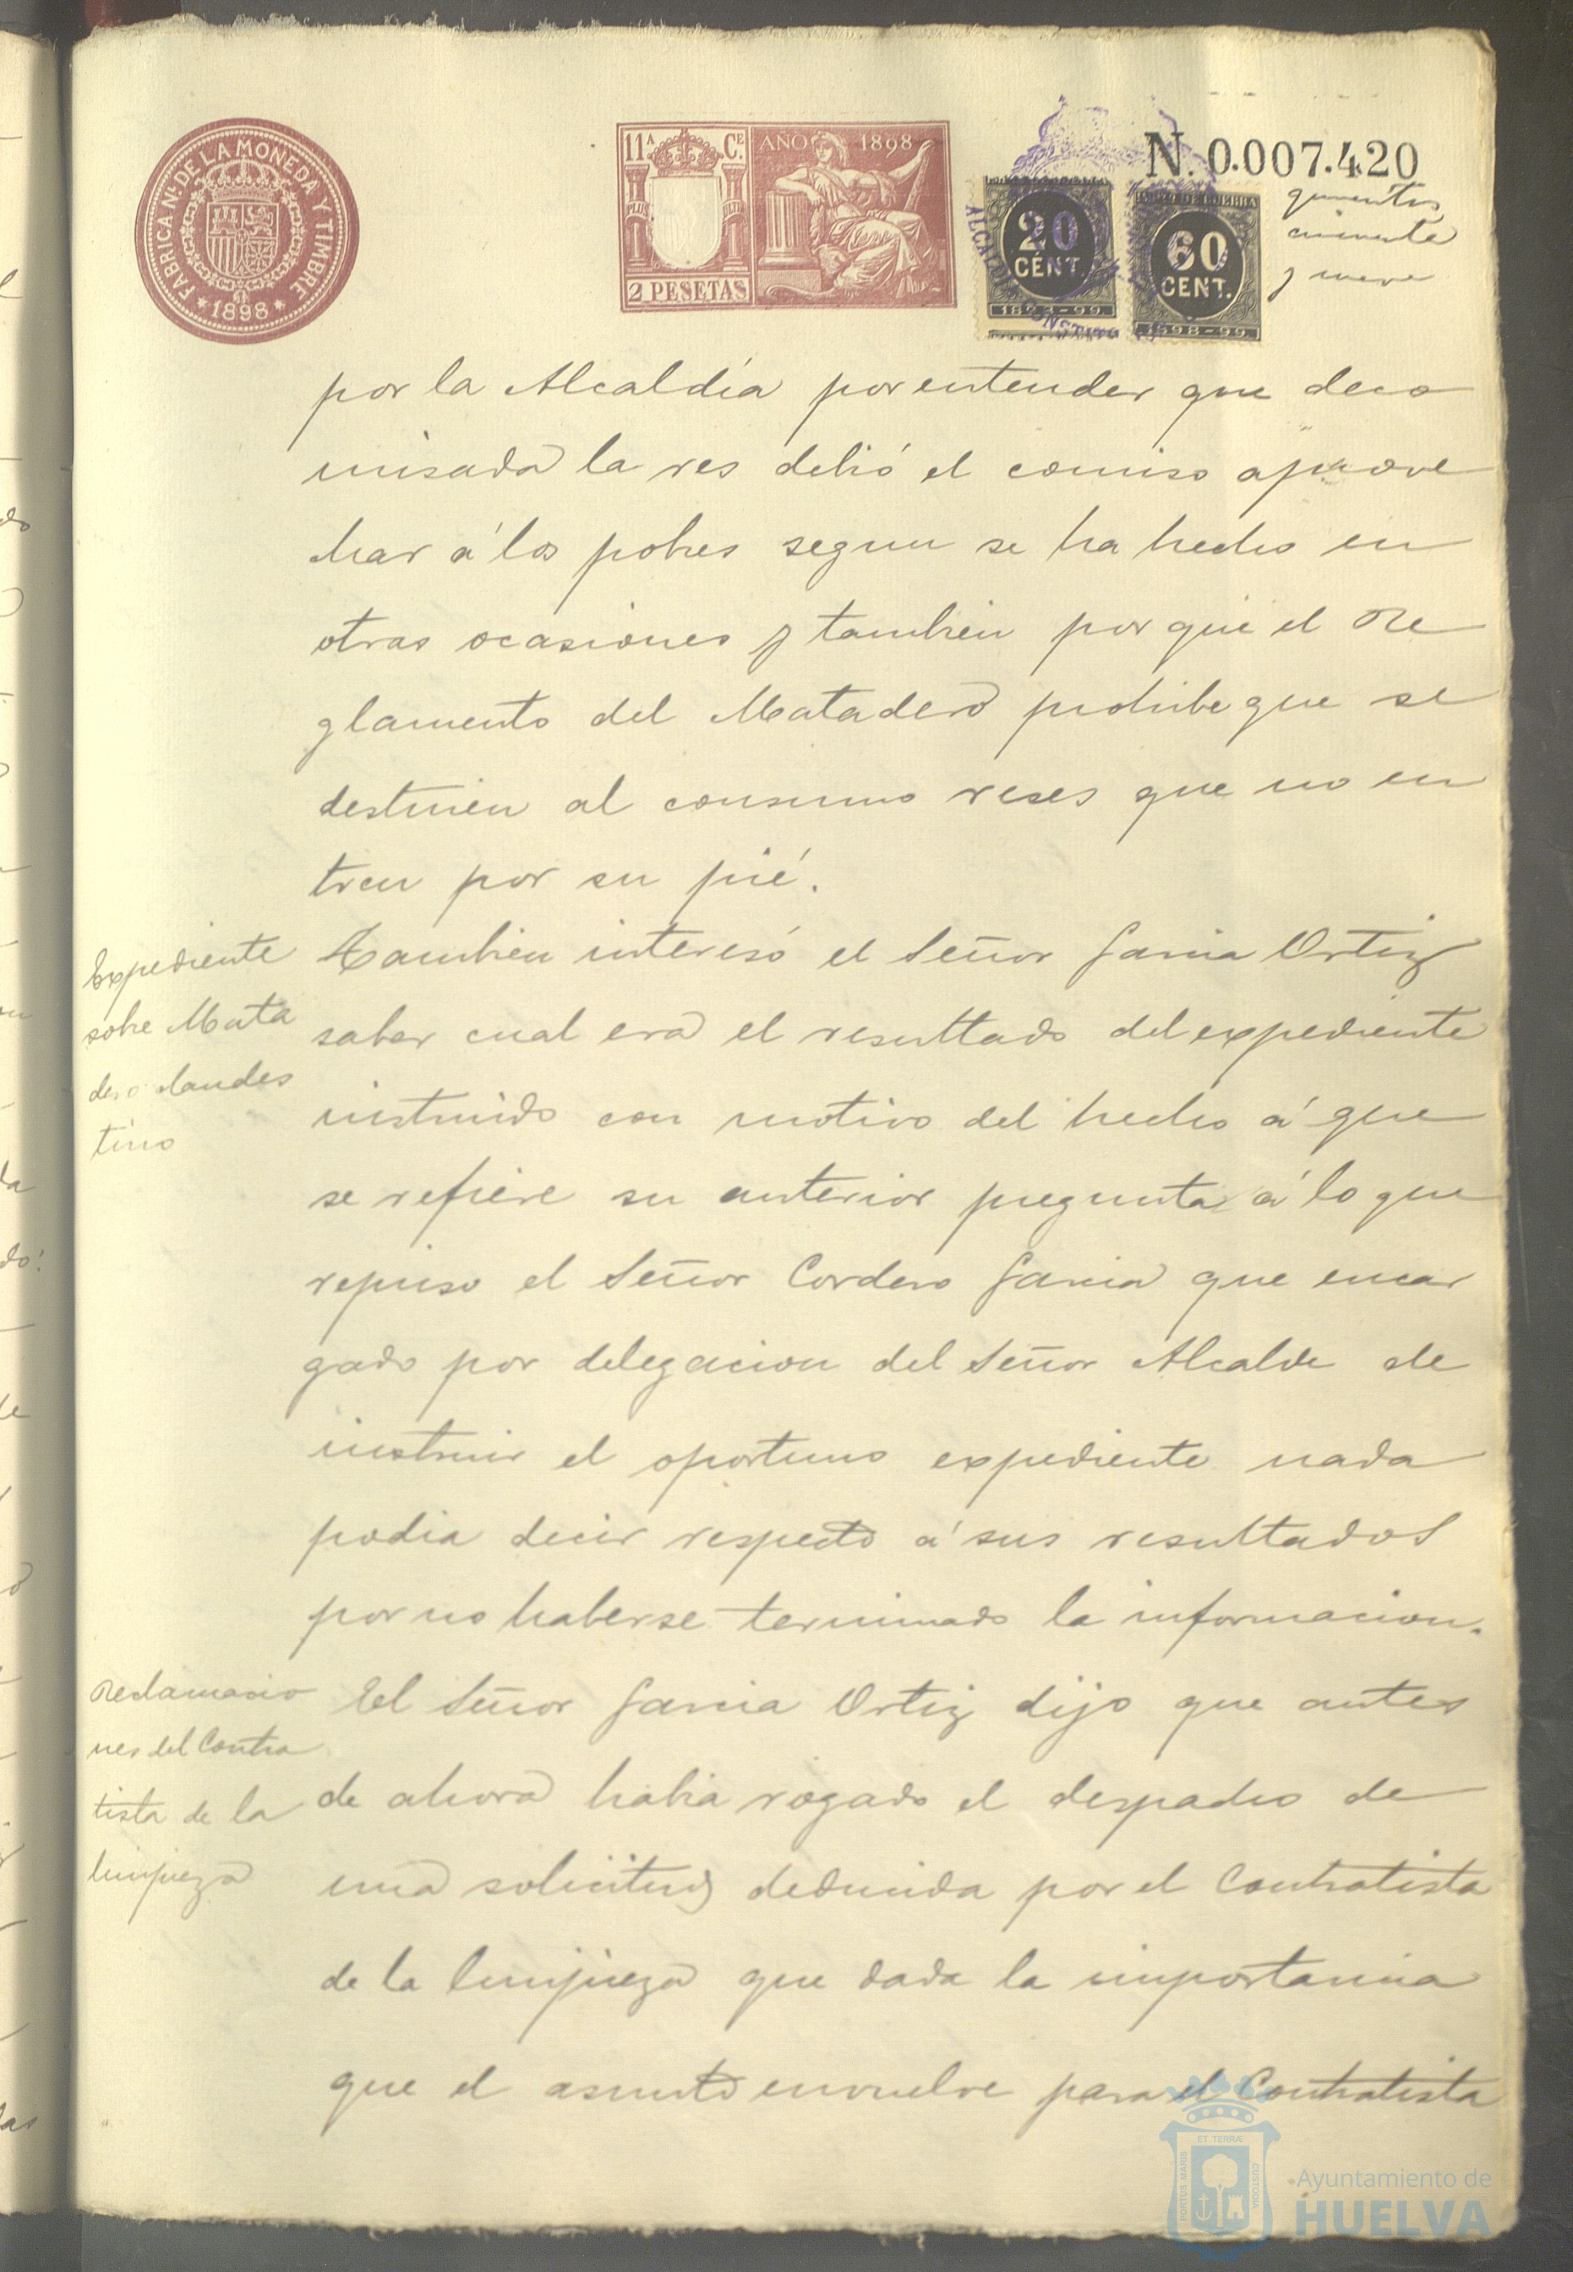 FABRICA N.L DE LA MONEDA Y TIMBRE
* 1898 *
11A CE.
AÑO 1898
PLUS ULTR
2 PESETAS
20
CÉNT.
1898-99
60
CENT.
1898-99
N. 0.007.420
quinientos
cincuenta
y nueve
por la Alcaldía por entender que deco
misada la res debió el comiso aprove
char á los pobres segun se ha hecho en
otras ocasiones y tambien por que el Re
glamento del Matadero prohibe que se
destinen al consumo reses que no en
tren por su pié.
Expediente
sobre Mata
dero clandes
tino
Tambien interesó el Señor Garcia Ortiz
saber cual era el resultado del expediente
instruido con motivo del hecho á que
se refiere su anterior pregunta á lo que
repuso el Señor Cordero Garcia que encar
gado por delegacion del Señor Alcalde de
instruir el oportuno expediente nada
podia decir respecto á sus resultados
por no haberse terminado la informacion.
Reclamacio
nes del Contra
tista de la
limpieza
El Señor Garcia Ortiz dijo que antes
de ahora habia rogado el despacho de
una solicitud deducida por el Contratista
de la limpieza que dada la importancia
que el asunto envuelve para el Contratista
PORTUS MARIS
ET TERRÆ
CUSTODIA
Ayuntamiento de
HUELVA